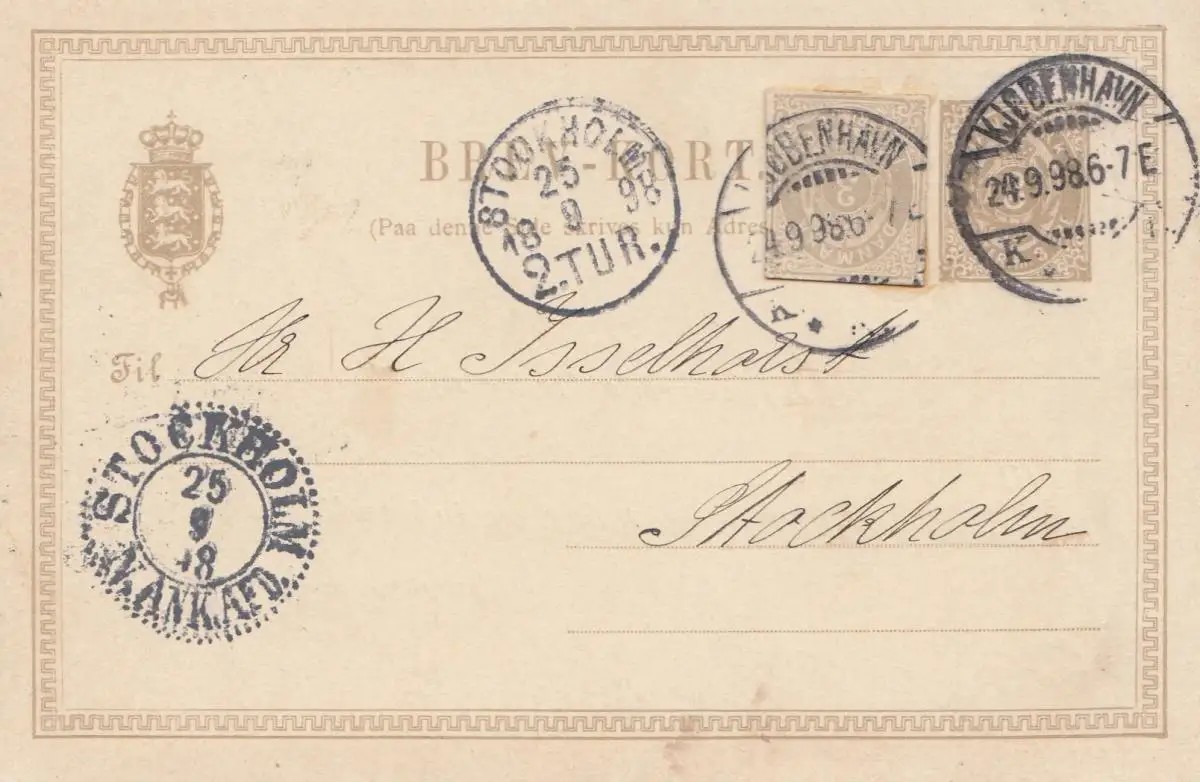 BREV-KORT.
(Paa denne Side skrives kun Adres
STOCKHOLM
25
9
18 98
2.TUR.
KJØBENHAVN
24.9.98.6-7E
K.
KJØBENHAVN
4.9.98.6-7E
K
3
DANMA
Til Hr H Isselhorst
Stockholm
STOCKHOLM
25
9
18
ANK.AFD.